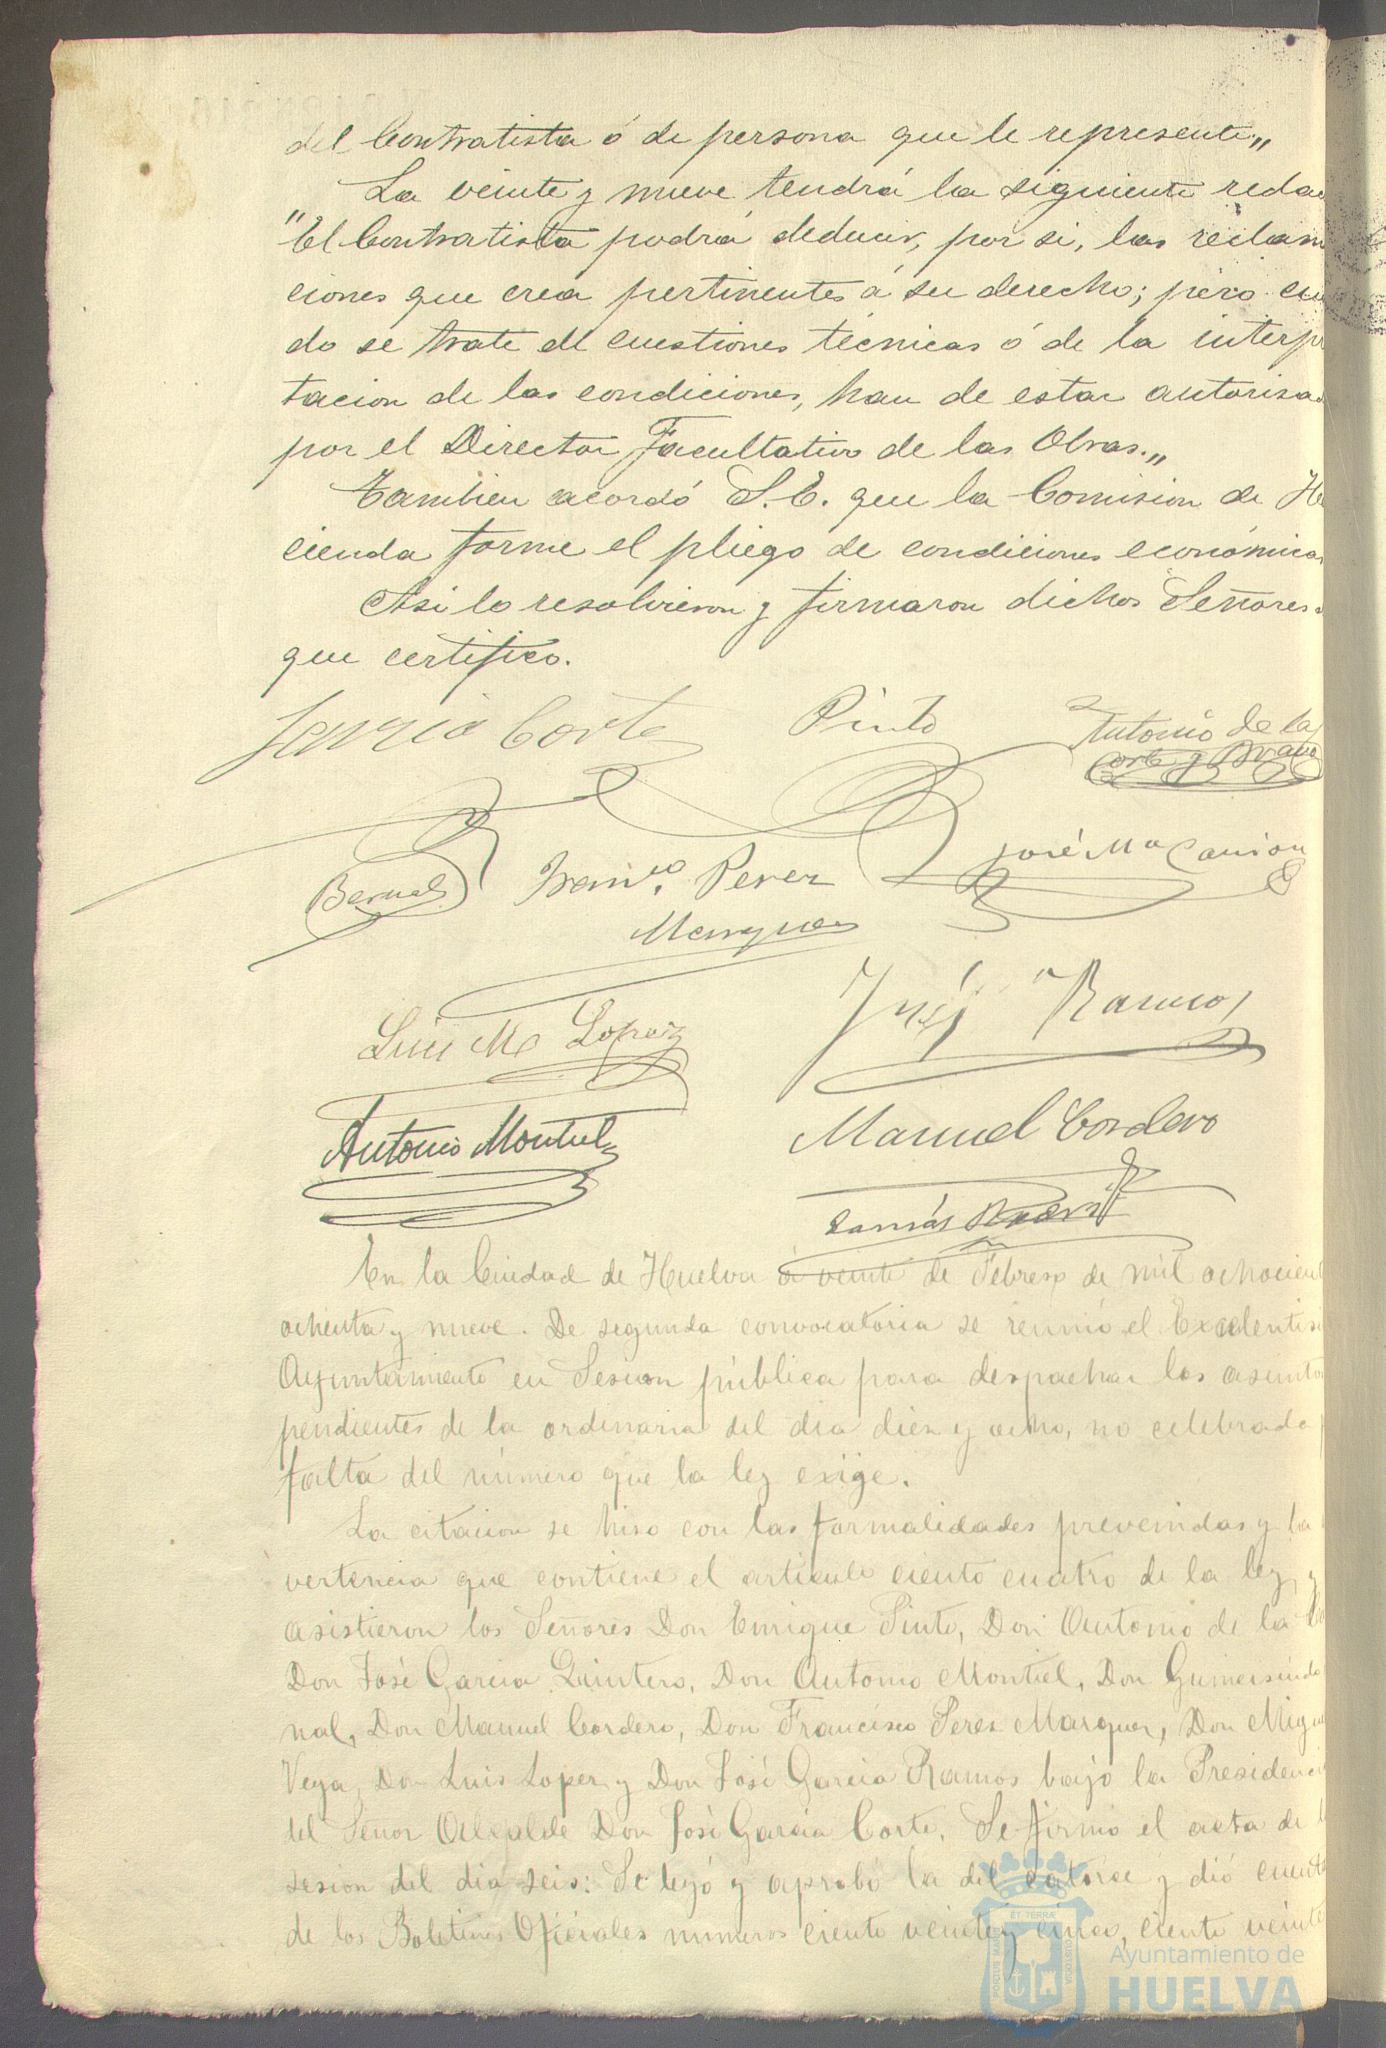 del Contratista ó de persona que le represente,,
La veinte y nueve tendrá la siguiente redac
"El Contratista podrá deducir, por si, las reclam
ciones que crea pertinentes á su derecho; pero cua
do se trate de cuestiones técnicas ó de la interpr
tacion de las condiciones, han de estar autoriza
por el Director Facultativo de las Obras.,,
Tambien acordó S.E. que la Comision de Ha
cienda forme el pliego de condiciones económica
Asi lo resolvieron y firmaron dichos Señores
que certifico.
Garcia Corte Pinto Antonio de la
Corte y Bravo
Bernal Franco. Perez José Ma
Marquez
Luis Ma Lopez José Ramos
Antonio Montiel Manuel Cordero
Tomás
En la Ciudad de Huelva á veinte de Febrero de mil ochocient
ochenta y nueve. De segunda convocatoria se reunió el Excelentisi
Ayuntamiento en Sesion pública para despachar los asunto
pendientes de la ordinaria del dia diez y ocho, no celebrada p
falta del número que la ley exige.
La citacion se hiso con las formalidades prevenidas y la
vertencia que contiene el articulo ciento cuatro de la ley, y
asistieron los Señores Don Enrique Pinto, Don Antonio de la Co
Don José Garcia Quintero, Don Antonio Montiel, Don Gumersindo
nal, Don Manuel Cordero, Don Francisco Peres Marquez, Don Migu
Vega, Don Luis Lopez y Don José Garcia Ramos bajo la Presidenci
del Señor Alcalde Don José Garcia Corte. Se firmó el acta de l
sesion del dia seis: Se leyó y aprobó la del catorce y dió cuent
de los Boletines Oficiales numeros ciento veinte y cinco, ciento veinte
Ayuntamiento de
HUELVA